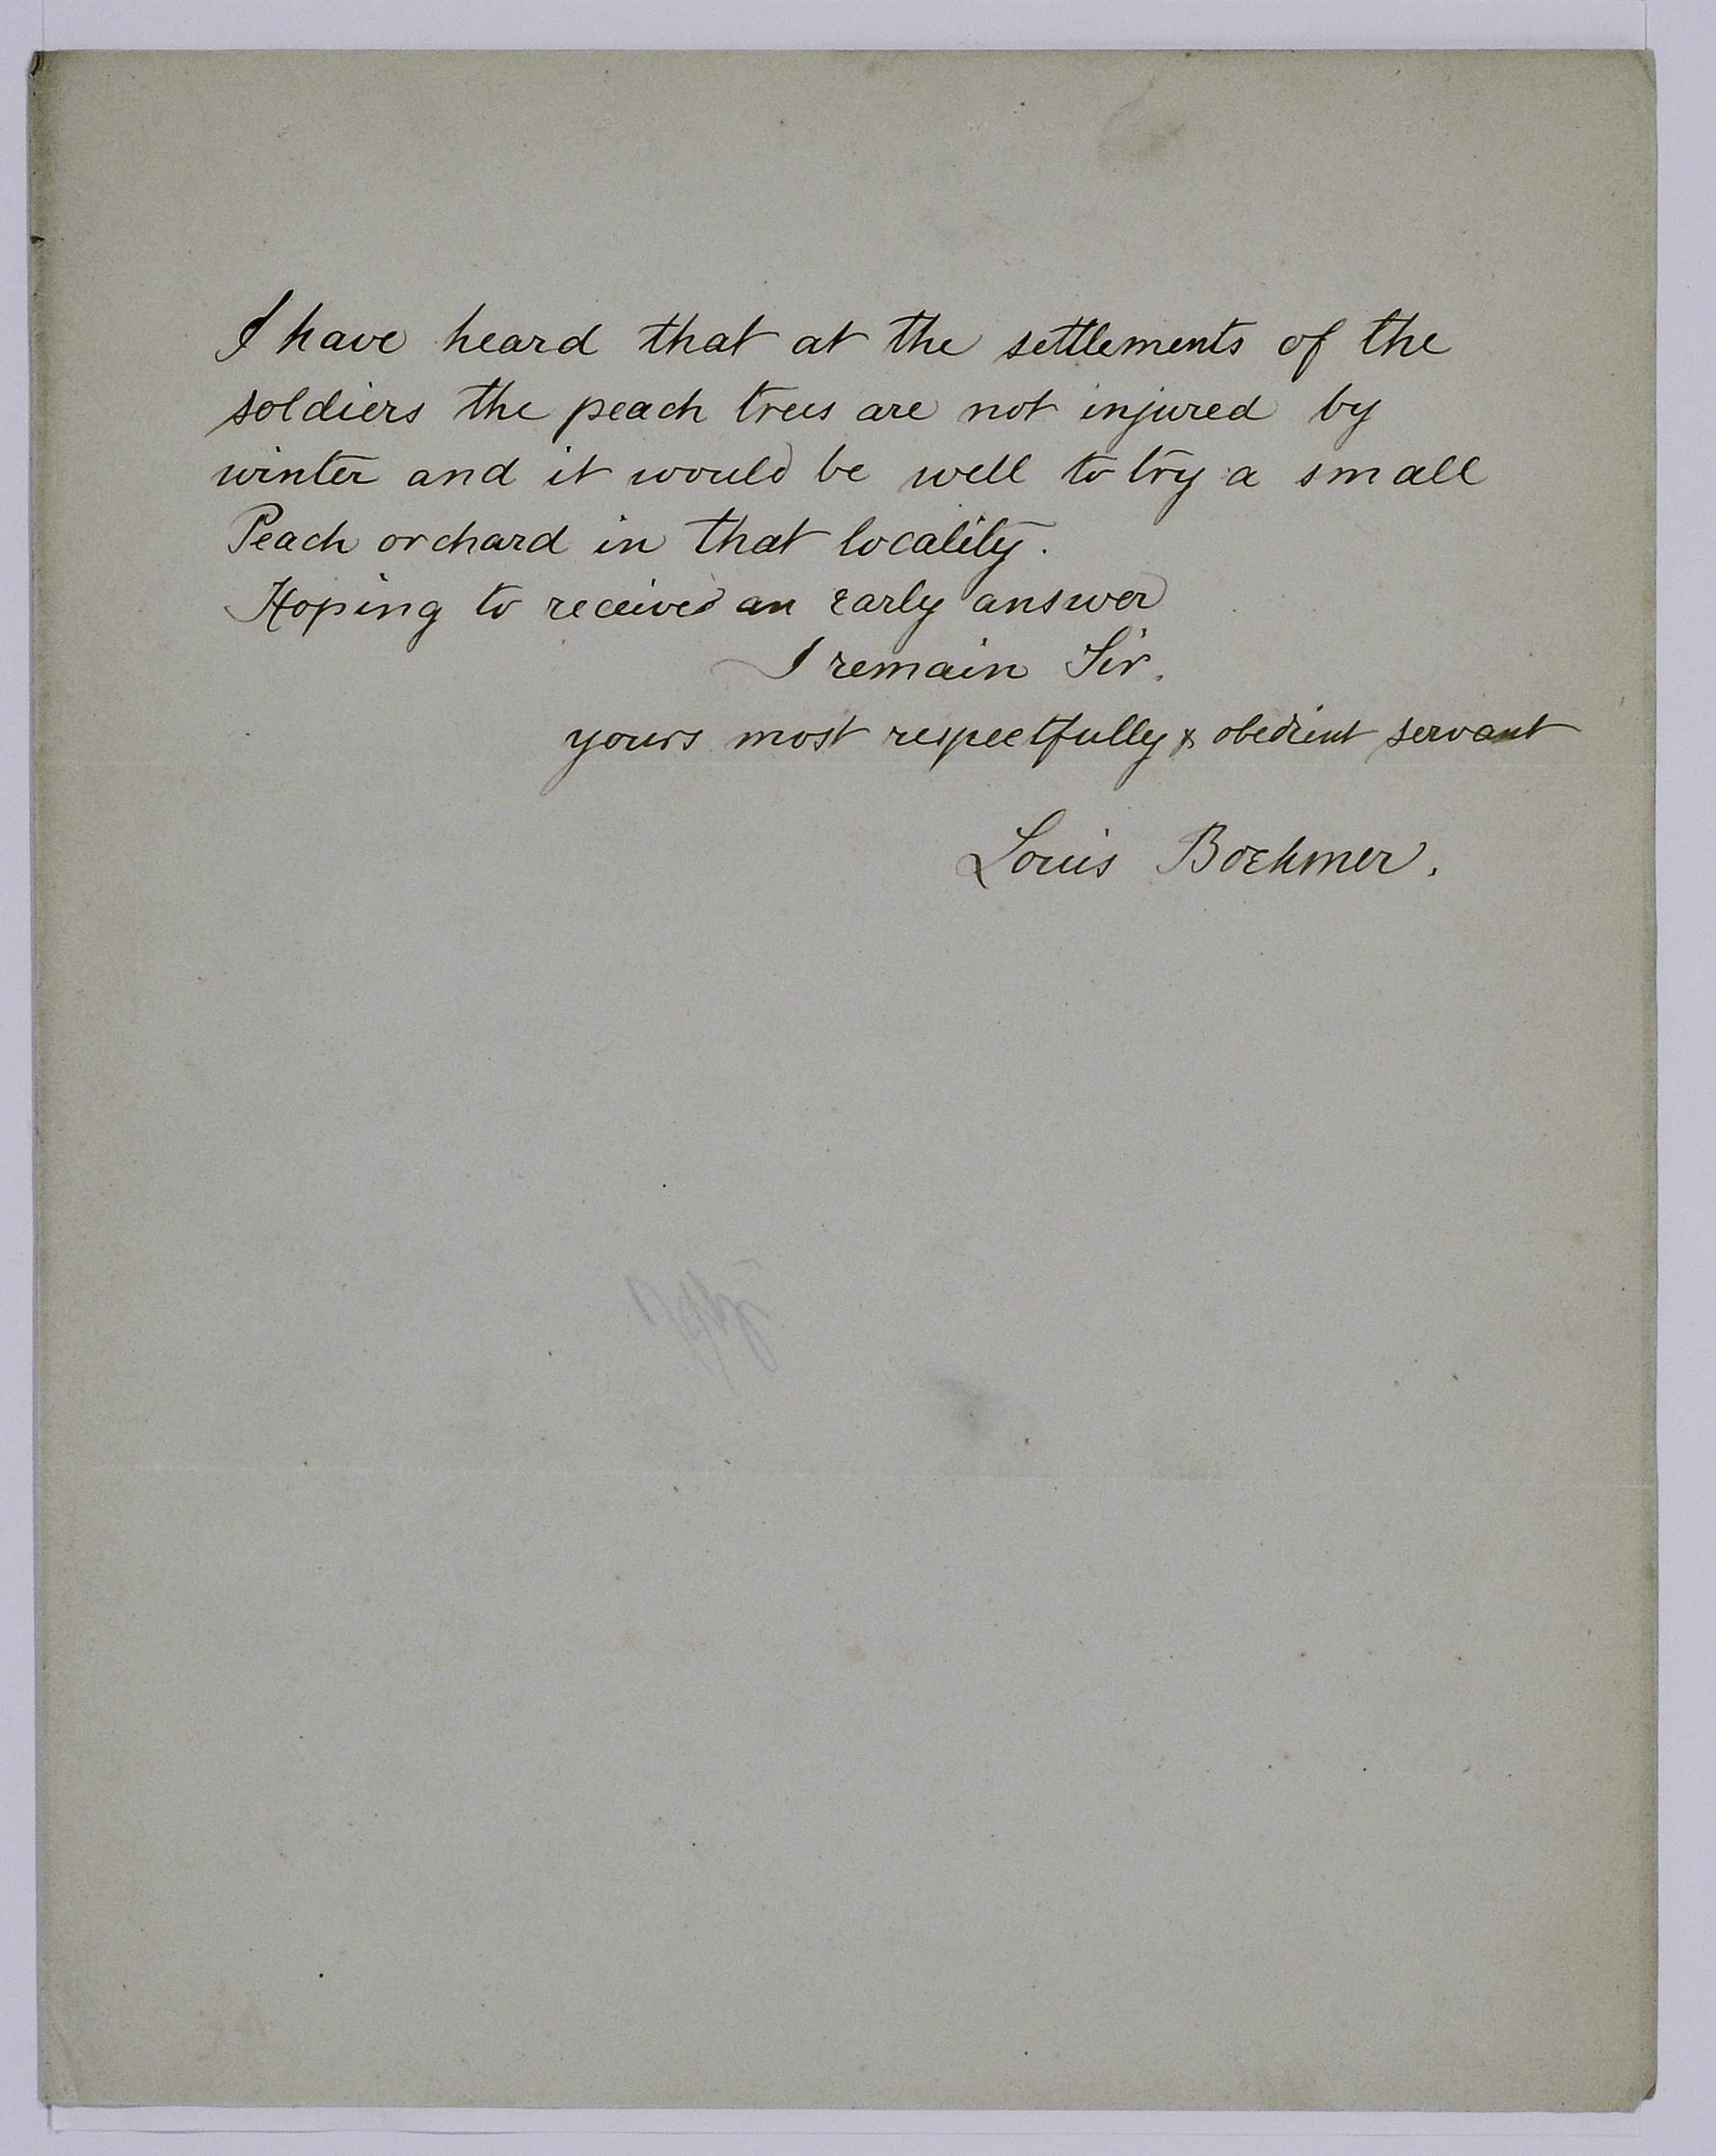 I have heard that at the settlements of the
soldiers the peach trees are not injured by
winter and it would be well to try a small
Peach orchard in that locality.
Hoping to receive an early answer
I remain Sir.
yours most respectfully & obedient servant
Louis Boehmer.